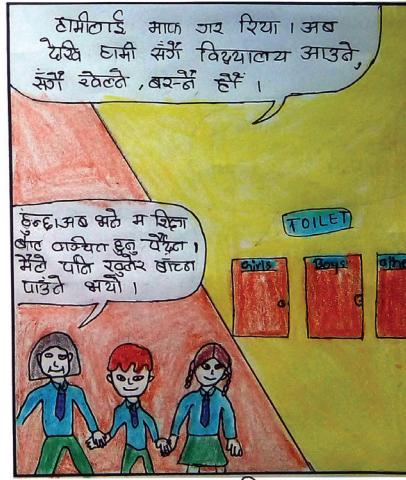 हामीलाई माफ गर रिया । अब
देखि हामी संगै विद्यालय आउने,
संगै खेल्ने , बस्ने है ।
हुन्छ।अब भने म शिक्षा
बाट वञ्चित हुनु पर्दैन ।
मैले पनि खुलेर बाच्न
पाउने भयो ।
TOILET
Girls
Boys
othe